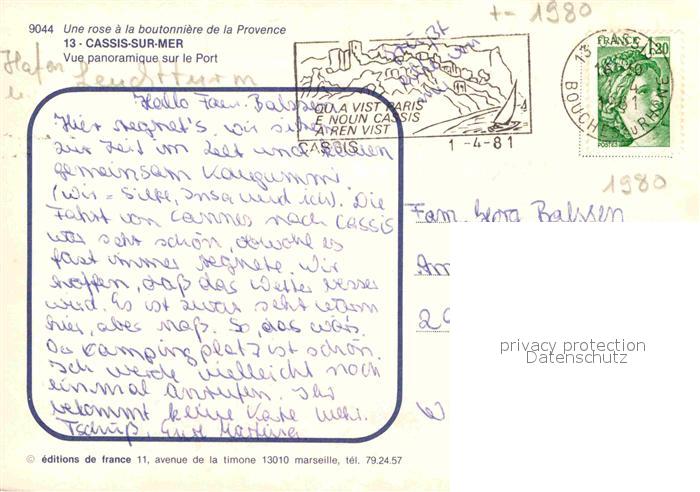 9044 Une rose à la boutonnière de la Provence
13 - CASSIS-SUR-MER
Vue panoramique sur le Port
Hafen
u. Leuchtturm
+- 1980
QU A VIST PARIS
E NOUN CASSIS
A REN VIST
CASSIS
1-4-81
FRANCE
1,80
POSTES
BOUCHES DU RHONE
1980
Hallo Fam. Balssen
Hier regnet's, wir sitzen
zur Zeit im Zelt und
gemeinsam Kaugummi
(wir = Silke, Insa und ich). Die
Fahrt von Cannes nach CASSIS
war sehr schön, obwohl es
fast immer regnete. Wir
hoffen, daß das Wetter besser
wird. Es ist zwar sehr warm
hier, aber naß. So das wär's.
Der Campingplatz ist schön.
Ich werde vielleicht noch
einmal anrufen. Ihr
bekommt keine Karte mehr.
Tschüß, Eure Martina
Fam. Georg Balssen
Am
29
W
privacy protection
Datenschutz
© éditions de france 11, avenue de la timone 13010 marseille, tél. 79.24.57